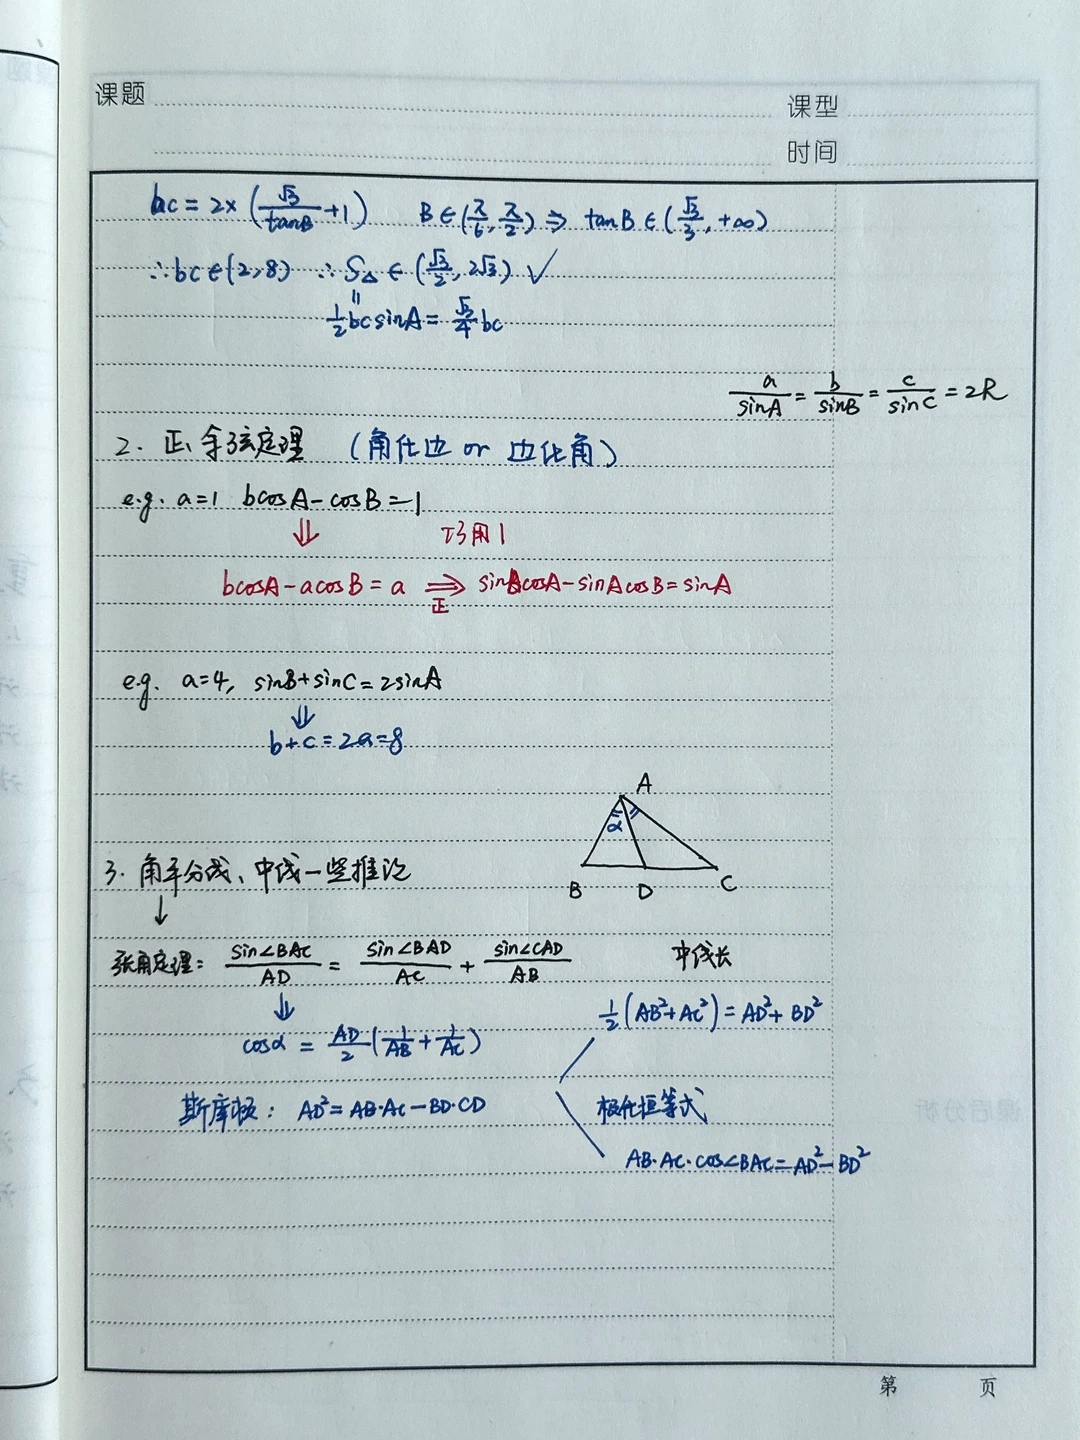 课题
课型
时间
bc = 2×(√3/tanB +1)  B∈(π/6, π/2) ⇒ tanB∈(√3/3, +∞)
∴bc∈(2,8)  ∴S△∈(√3/2, 2√3) ✓
=
1/2 bcsinA = √3/4 bc
a/sinA = b/sinB = c/sinC = 2R
2. 正、余弦定理 (角化边 or 边化角)
e.g. a=1 bcosA-cosB=1
⇓ 巧用1
bcosA-acosB=a ⇒ sinBcosA-sinAcosB=sinA
正
e.g. a=4, sinB+sinC=2sinA
⇓
b+c=2a=8
A
α
B D C
3. 角平分线、中线一些推论
↓
张角定理: sin∠BAC/AD = sin∠BAD/AC + sin∠CAD/AB
⇓
cosα = AD/2 (1/AB + 1/AC)
斯库顿: AD²=AB·AC-BD·CD
中线长
1/2(AB²+AC²)=AD²+BD²
极化恒等式
AB·AC·cos∠BAC=AD²-BD²
第 页